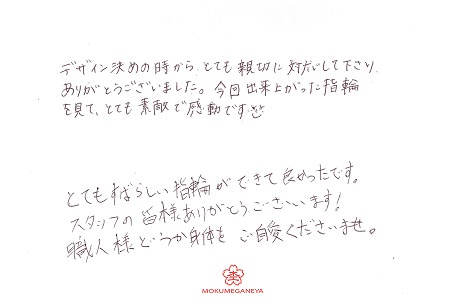 デザイン決めの時から、とても親切に対応して下さり
ありがとうございました。今回出来上がった指輪
を見て、とても素敵で感動です
とてもすばらしい指輪ができて良かったです。
スタッフの皆様ありがとうございます!
職人様どうか身体をご自愛くださいませ。
MOKUMEGANEYA